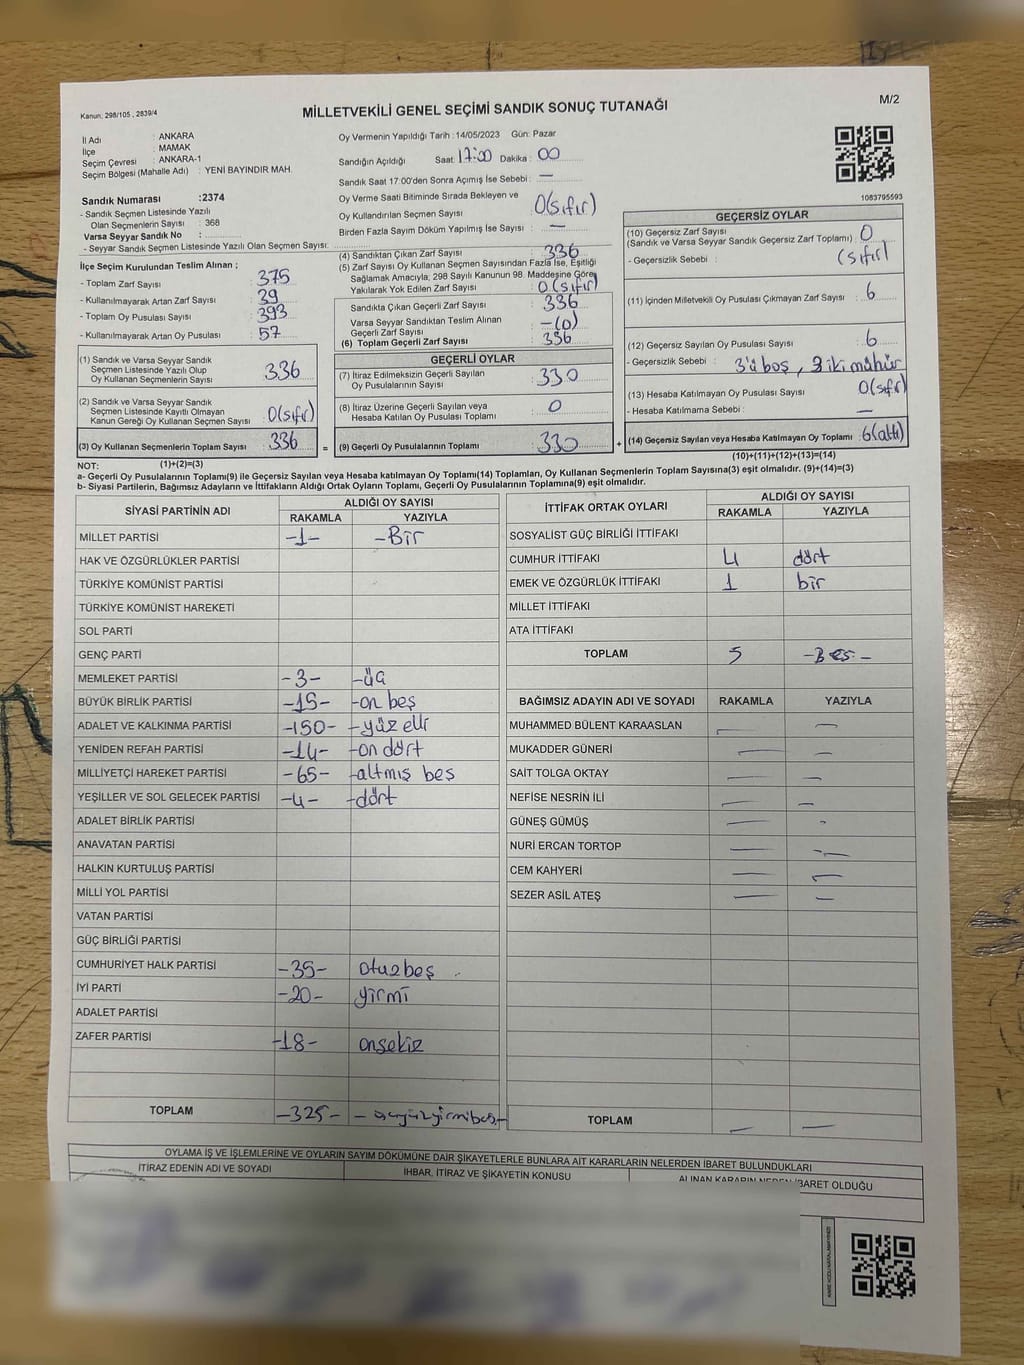 Kanun: 298/105 , 2839/4
MİLLETVEKİLİ GENEL SEÇİMİ SANDIK SONUÇ TUTANAĞI
M/2
İl Adı : ANKARA
İlçe : MAMAK
Seçim Çevresi : ANKARA-1
Seçim Bölgesi (Mahalle Adı) : YENİ BAYINDIR MAH.
Sandık Numarası :2374
- Sandık Seçmen Listesinde Yazılı
Olan Seçmenlerin Sayısı : 368
Varsa Seyyar Sandık No :
- Seyyar Sandık Seçmen Listesinde Yazılı Olan Seçmen Sayısı:
Oy Vermenin Yapıldığı Tarih :14/05/2023 Gün: Pazar
Sandığın Açıldığı Saat: 17:00 Dakika : 00
Sandık Saat 17:00'den Sonra Açımış İse Sebebi : —
Oy Verme Saati Bitiminde Sırada Bekleyen ve
Oy Kullandırılan Seçmen Sayısı : 0(sıfır)
Birden Fazla Sayım Döküm Yapılmış İse Sayısı : —
1083795593
İlçe Seçim Kurulundan Teslim Alınan ;
- Toplam Zarf Sayısı : 375
- Kullanılmayarak Artan Zarf Sayısı : 39
- Toplam Oy Pusulası Sayısı : 393
- Kullanılmayarak Artan Oy Pusulası : 57
(1) Sandık ve Varsa Seyyar Sandık
Seçmen Listesinde Yazılı Olup
Oy Kullanan Seçmenlerin Sayısı 336
(2) Sandık ve Varsa Seyyar Sandık
Seçmen Listesinde Kayıtlı Olmayan
Kanun Gereği Oy Kullanan Seçmen Sayısı 0(sıfır)
(3) Oy Kullanan Seçmenlerin Toplam Sayısı 336 =
(4) Sandıktan Çıkan Zarf Sayısı : 336
(5) Zarf Sayısı Oy Kullanan Seçmen Sayısından Fazla İse, Eşitliği
Sağlamak Amacıyla, 298 Sayılı Kanunun 98. Maddesine Göre
Yakılarak Yok Edilen Zarf Sayısı : 0(sıfır)
Sandıkta Çıkan Geçerli Zarf Sayısı : 336
Varsa Seyyar Sandıktan Teslim Alınan
Geçerli Zarf Sayısı : -(0)
(6) Toplam Geçerli Zarf Sayısı : 336
GEÇERLİ OYLAR
(7) İtiraz Edilmeksizin Geçerli Sayılan
Oy Pusulalarının Sayısı : 330
(8) İtiraz Üzerine Geçerli Sayılan veya
Hesaba Katılan Oy Pusulası Toplamı : 0
(9) Geçerli Oy Pusulalarının Toplamı : 330 +
GEÇERSİZ OYLAR
(10) Geçersiz Zarf Sayısı
(Sandık ve Varsa Seyyar Sandık Geçersiz Zarf Toplamı) : 0
- Geçersizlik Sebebi : (sıfır)
(11) İçinden Milletvekili Oy Pusulası Çıkmayan Zarf Sayısı : 6
(12) Geçersiz Sayılan Oy Pusulası Sayısı : 6
- Geçersizlik Sebebi : 3'ü boş, 3 iki mühür
(13) Hesaba Katılmayan Oy Pusulası Sayısı : 0(sıfır)
- Hesaba Katılmama Sebebi : —
(14) Geçersiz Sayılan veya Hesaba Katılmayan Oy Toplamı : 6(altı)
(10)+(11)+(12)+(13)=(14)
NOT: (1)+(2)=(3)
a- Geçerli Oy Pusulalarının Toplamı(9) ile Geçersiz Sayılan veya Hesaba katılmayan Oy Toplamı(14) Toplamları, Oy Kullanan Seçmenlerin Toplam Sayısına(3) eşit olmalıdır. (9)+(14)=(3)
b- Siyasi Partilerin, Bağımsız Adayların ve İttifakların Aldığı Ortak Oyların Toplamı, Geçerli Oy Pusulalarının Toplamına(9) eşit olmalıdır.
SİYASİ PARTİNİN ADI ALDIĞI OY SAYISI
RAKAMLA YAZIYLA
MİLLET PARTİSİ -1- -Bir
HAK VE ÖZGÜRLÜKLER PARTİSİ
TÜRKİYE KOMÜNİST PARTİSİ
TÜRKİYE KOMÜNİST HAREKETİ
SOL PARTİ
GENÇ PARTİ
MEMLEKET PARTİSİ -3- -üç
BÜYÜK BİRLİK PARTİSİ -15- -on beş
ADALET VE KALKINMA PARTİSİ -150- -yüz elli
YENİDEN REFAH PARTİSİ -14- -on dört
MİLLİYETÇİ HAREKET PARTİSİ -65- -altmış beş
YEŞİLLER VE SOL GELECEK PARTİSİ -4- -dört
ADALET BİRLİK PARTİSİ
ANAVATAN PARTİSİ
HALKIN KURTULUŞ PARTİSİ
MİLLİ YOL PARTİSİ
VATAN PARTİSİ
GÜÇ BİRLİĞİ PARTİSİ
CUMHURİYET HALK PARTİSİ -35- otuzbeş
İYİ PARTİ -20- yirmi
ADALET PARTİSİ
ZAFER PARTİSİ -18- onsekiz
TOPLAM -325- - üçyüzyirmibeş-
İTTİFAK ORTAK OYLARI ALDIĞI OY SAYISI
RAKAMLA YAZIYLA
SOSYALİST GÜÇ BİRLİĞİ İTTİFAKI
CUMHUR İTTİFAKI 4 dört
EMEK VE ÖZGÜRLÜK İTTİFAKI 1 bir
MİLLET İTTİFAKI
ATA İTTİFAKI
TOPLAM 5 -Beş-
BAĞIMSIZ ADAYIN ADI VE SOYADI RAKAMLA YAZIYLA
MUHAMMED BÜLENT KARAASLAN — —
MUKADDER GÜNERİ — —
SAİT TOLGA OKTAY — —
NEFİSE NESRİN İLİ — —
GÜNEŞ GÜMÜŞ — -
NURİ ERCAN TORTOP — —
CEM KAHYERİ — —
SEZER ASİL ATEŞ — —
TOPLAM — —
OYLAMA İŞ VE İŞLEMLERİNE VE OYLARIN SAYIM DÖKÜMÜNE DAİR ŞİKAYETLERLE BUNLARA AİT KARARLARIN NELERDEN İBARET BULUNDUKLARI
İTİRAZ EDENİN ADI VE SOYADI İHBAR, İTİRAZ VE ŞİKAYETİN KONUSU ALINAN KARARIN NEDEN İBARET OLDUĞU